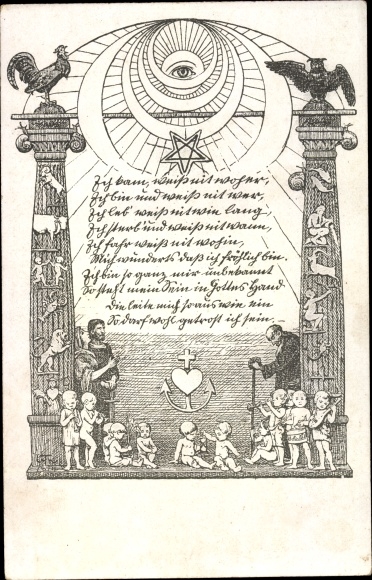 Ich kam, weiß nit woher,
Ich bin und weiß nit wer,
Ich leb' weiß nit wie lang,
Ich sterb' und weiß nit wann,
Ich fahr weiß nit wohin,
Mich wunderts daß ich fröhlich bin.
Ich bin so ganz mir unbekannt
So steht mein Sein in Gottes Hand
Die leite mich so aus wie ein
So darf wohl getrost ich sein. –